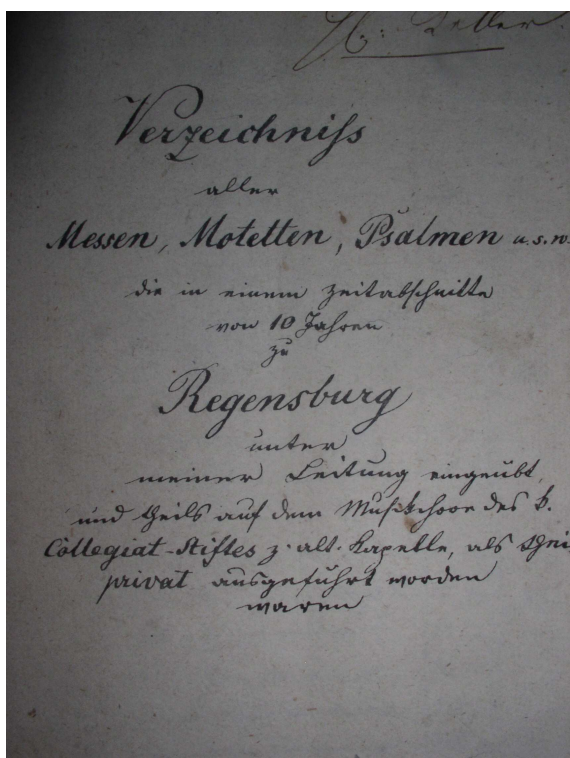 Verzeichniſs
aller
Messen, Motetten, Psalmen u. s. w.
die in einem Zeitabschnitte
von 10 Jahren
zu
Regensburg
unter
meiner Leitung eingeübt,
und theils auf dem Musikchore des k.
Collegiat-Stiftes z. alt. Kapelle, als thei
privat ausgeführt worden
waren